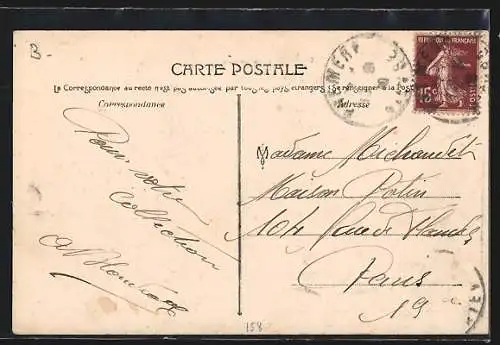 B-
CARTE POSTALE
La Correspondance au recto n'est pas autorisée par tous les pays étrangers (Se renseigner à la Poste
Correspondance
Adresse
REPUBLIQUE FRANÇAISE
15c
POSTES
Pour votre
collection
Madame
Maison Potin
104 Rue de
Paris
19
158